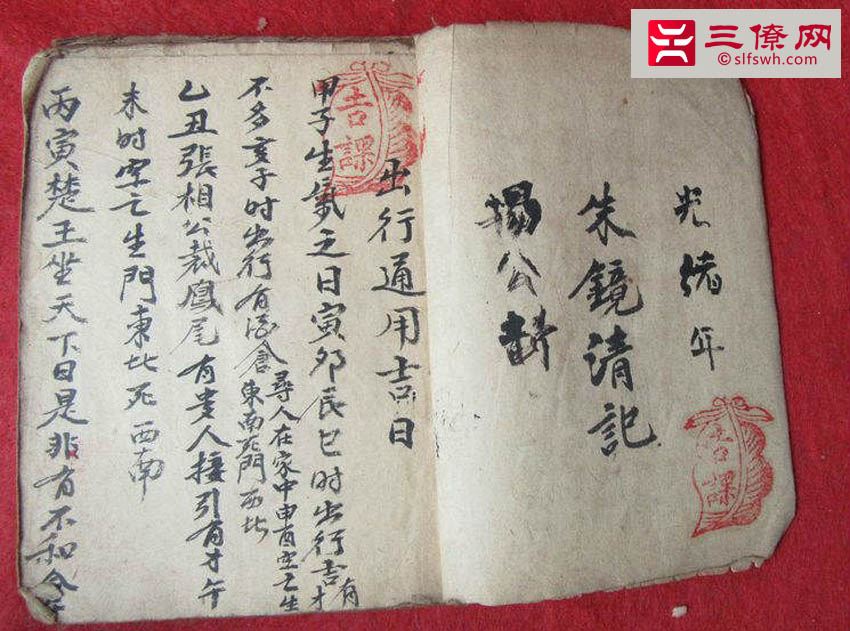 三僚网
slfswh.com
光绪年
朱鏡清記
楊公
吉課
吉課
出行通用吉日
甲子生氣之日寅卯辰巳时出行吉有才
不多亥子时出行有酒食尋人在家中申酉空亡生
東南死門西北
乙丑張相公裁鳳尾有贵人接引有才午
未时空亡生門東北死西南
丙寅楚王坐天下日是非有不和今